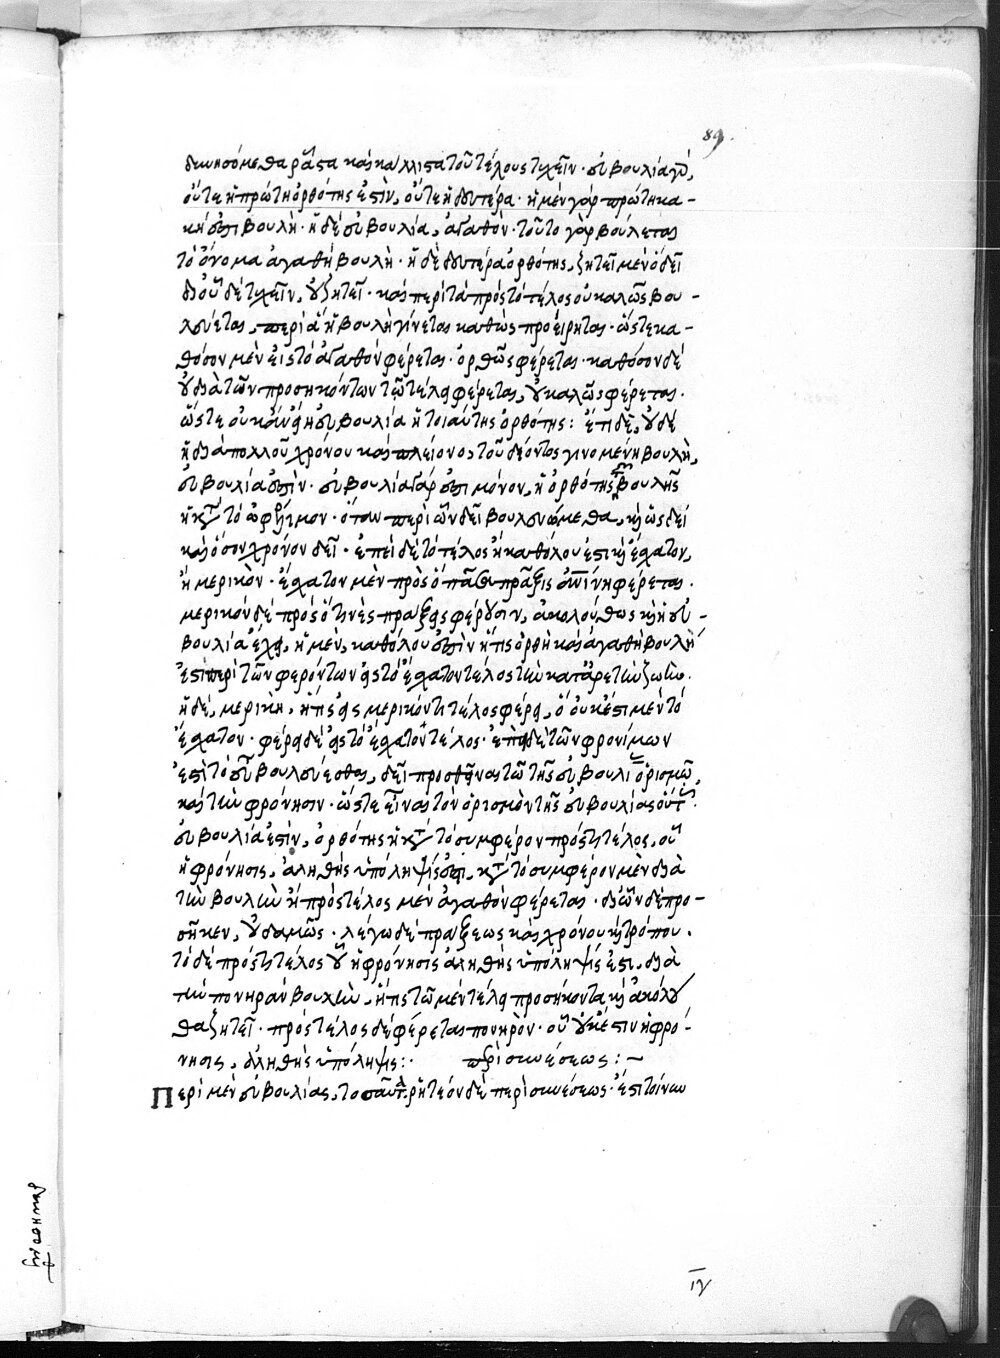 89.
δυνησόμεθα ῥᾷστα καὶ κάλλιστα τοῦ τέλους τυχεῖν· εὐβουλία γὰρ,
οὔτε ἡ πρώτη ὀρθότης ἐστὶν, οὔτε ἡ δευτέρα· ἡ μὲν γὰρ πρώτη κα-
κή ἐστι βουλὴ· ἡ δὲ εὐβουλία, ἀγαθόν· τοῦτο γὰρ βούλεται
τὸ ὄνομα ἀγαθὴ βουλὴ· ἡ δὲ δευτέρα ὀρθότης, ζητεῖ μὲν ὃ δεῖ
δι' οὗ δὲ τυχεῖν, οὐ ζητεῖ· καὶ περὶ τὰ πρὸς τὸ τέλος οὐ καλῶς βου-
λεύεται, περὶ ἃ ἡ βουλὴ γίνεται καθὼς προείρηται· ὥστε κα-
θόσον μὲν εἰς τὸ ἀγαθὸν φέρεται· ὀρθῶς φέρεται· καθόσον δὲ
οὐ διὰ τῶν προσηκόντων τῷ τέλει φέρεται, οὐ καλῶς φέρεται·
ὥστε οὐκ ἂν εἴη εὐβουλία ἡ τοιαύτης ὀρθότης: ἔτι δὲ, οὐδὲ
ἡ διὰ πολλοῦ χρόνου καὶ πλείονος τοῦ δέοντος γινομένη βουλὴ,
εὐβουλία ἐστὶν· εὐβουλία γάρ ἐστι μόνον, ἡ ὀρθότης τῆς βουλῆς
ἡ κατὰ τὸ ὠφέλιμον· ὅταν περὶ ὧν δεῖ βουλευώμεθα, καὶ ὡς δεῖ
καὶ ὅσον χρόνον δεῖ· ἐπεὶ δὲ τὸ τέλος ἢ καθόλου ἐστὶ καὶ ἔσχατον,
ἢ μερικὸν· ἔσχατον μὲν πρὸς ὃ πᾶσα πρᾶξις ἀνθρωπίνη φέρεται·
μερικὸν δὲ πρὸς ὅ τινὲς πράξεις φέρουσιν, ἀκολούθως καὶ ἡ εὐ-
βουλία ἔχει, ἡ μὲν, καθόλου ἐστὶν ἥτις ὀρθὴ καὶ ἀγαθὴ βουλή
ἐστι περὶ τῶν φερόντων εἰς τὸ ἔσχατον τέλος τὴν κατ' ἀρετὴν ζωήν·
ἡ δὲ, μερικὴ, ἥτις εἰς μερικόν τι τέλος φέρει, ὃ οὐκ ἔστι μὲν τὸ
ἔσχατον· φέρει δὲ εἰς τὸ ἔσχατον τέλος· ἐπεὶ δὲ τῶν φρονίμων
ἐστὶ τὸ εὖ βουλεύεσθαι, δεῖ προσθεῖναι τῷ τῆς εὐβουλίας ὁρισμῷ,
καὶ τὴν φρόνησιν· ὥστε εἶναι τὸν ὁρισμὸν τῆς εὐβουλίας οὕτως·
εὐβουλία ἐστὶν, ὀρθότης ἡ κατὰ τὸ συμφέρον πρός τι τέλος, οὗ
ἡ φρόνησις, ἀληθὴς ὑπόληψίς ἐστι, κατὰ τὸ συμφέρον μὲν διὰ
τὴν βουλὴν ἣ πρὸς τέλος μὲν ἀγαθὸν φέρεται· δι' ὧν δὲ προ-
σῆκεν, οὐδαμῶς· λέγω δὲ πράξεως καὶ χρόνου καὶ τρόπου·
τὸ δὲ πρός τι τέλος οὗ ἡ φρόνησις ἀληθὴς ὑπόληψίς ἐστι, διὰ
τὴν πονηρὰν βουλὴν, ἥτις τῷ μὲν τέλει προσήκοντα καὶ ἀκόλου
θα ζητεῖ· πρὸς τέλος δὲ φέρεται πονηρὸν· οὗ οὐκ ἔστιν ἡ φρό-
νησις, ἀληθὴς ὑπόληψις:· περὶ συνέσεως:~
Περὶ μὲν εὐβουλίας, τοσαῦτα· ῥητέον δὲ περὶ συνέσεως· ἔστι τοίνυν